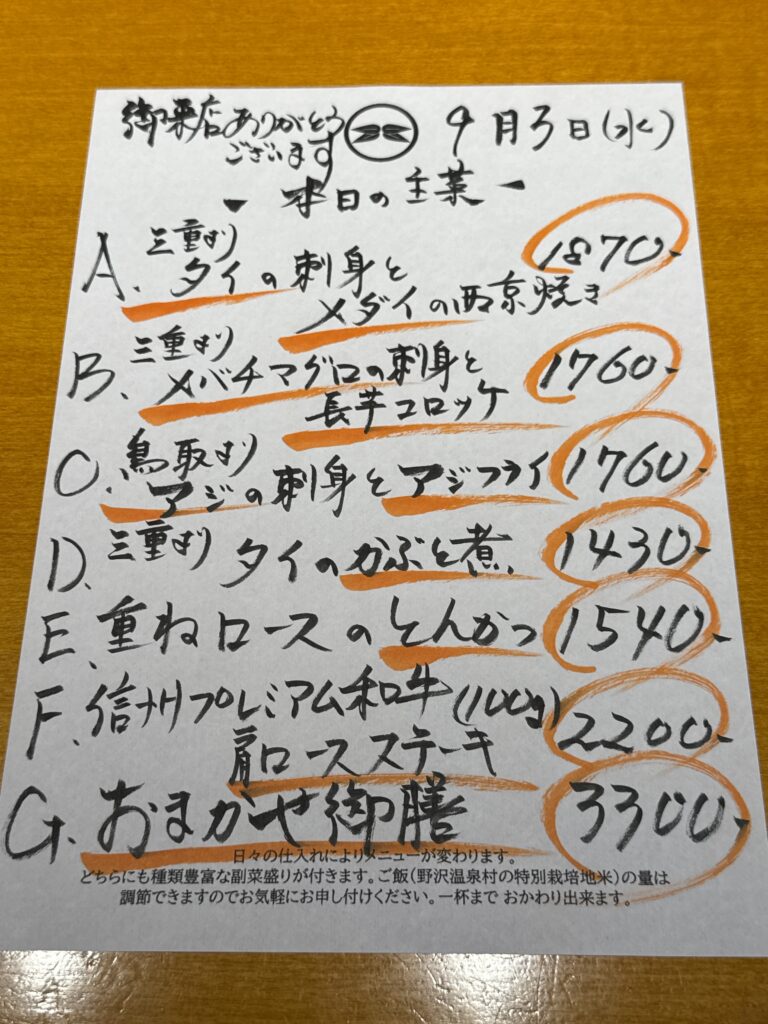 御来店ありがとう
ございます
9月3日(水)
- 本日の主菜 -
A. 三重より 1870-
タイの刺身と
メダイの西京焼き
B. 三重より 1760-
メバチマグロの刺身と
長芋コロッケ
C. 鳥取より
アジの刺身とアジフライ 1760-
D. 三重より タイのかぶと煮 1430-
E. 重ねロースのとんかつ 1540-
F. 信州プレミアム和牛(100g)
肩ロースステーキ 2200-
G. おまかせ御膳 3300-
日々の仕入れによりメニューが変わります。
どちらにも種類豊富な副菜盛りが付きます。ご飯(野沢温泉村の特別栽培地米)の量は
調節できますのでお気軽にお申し付けください。一杯まで おかわり出来ます。